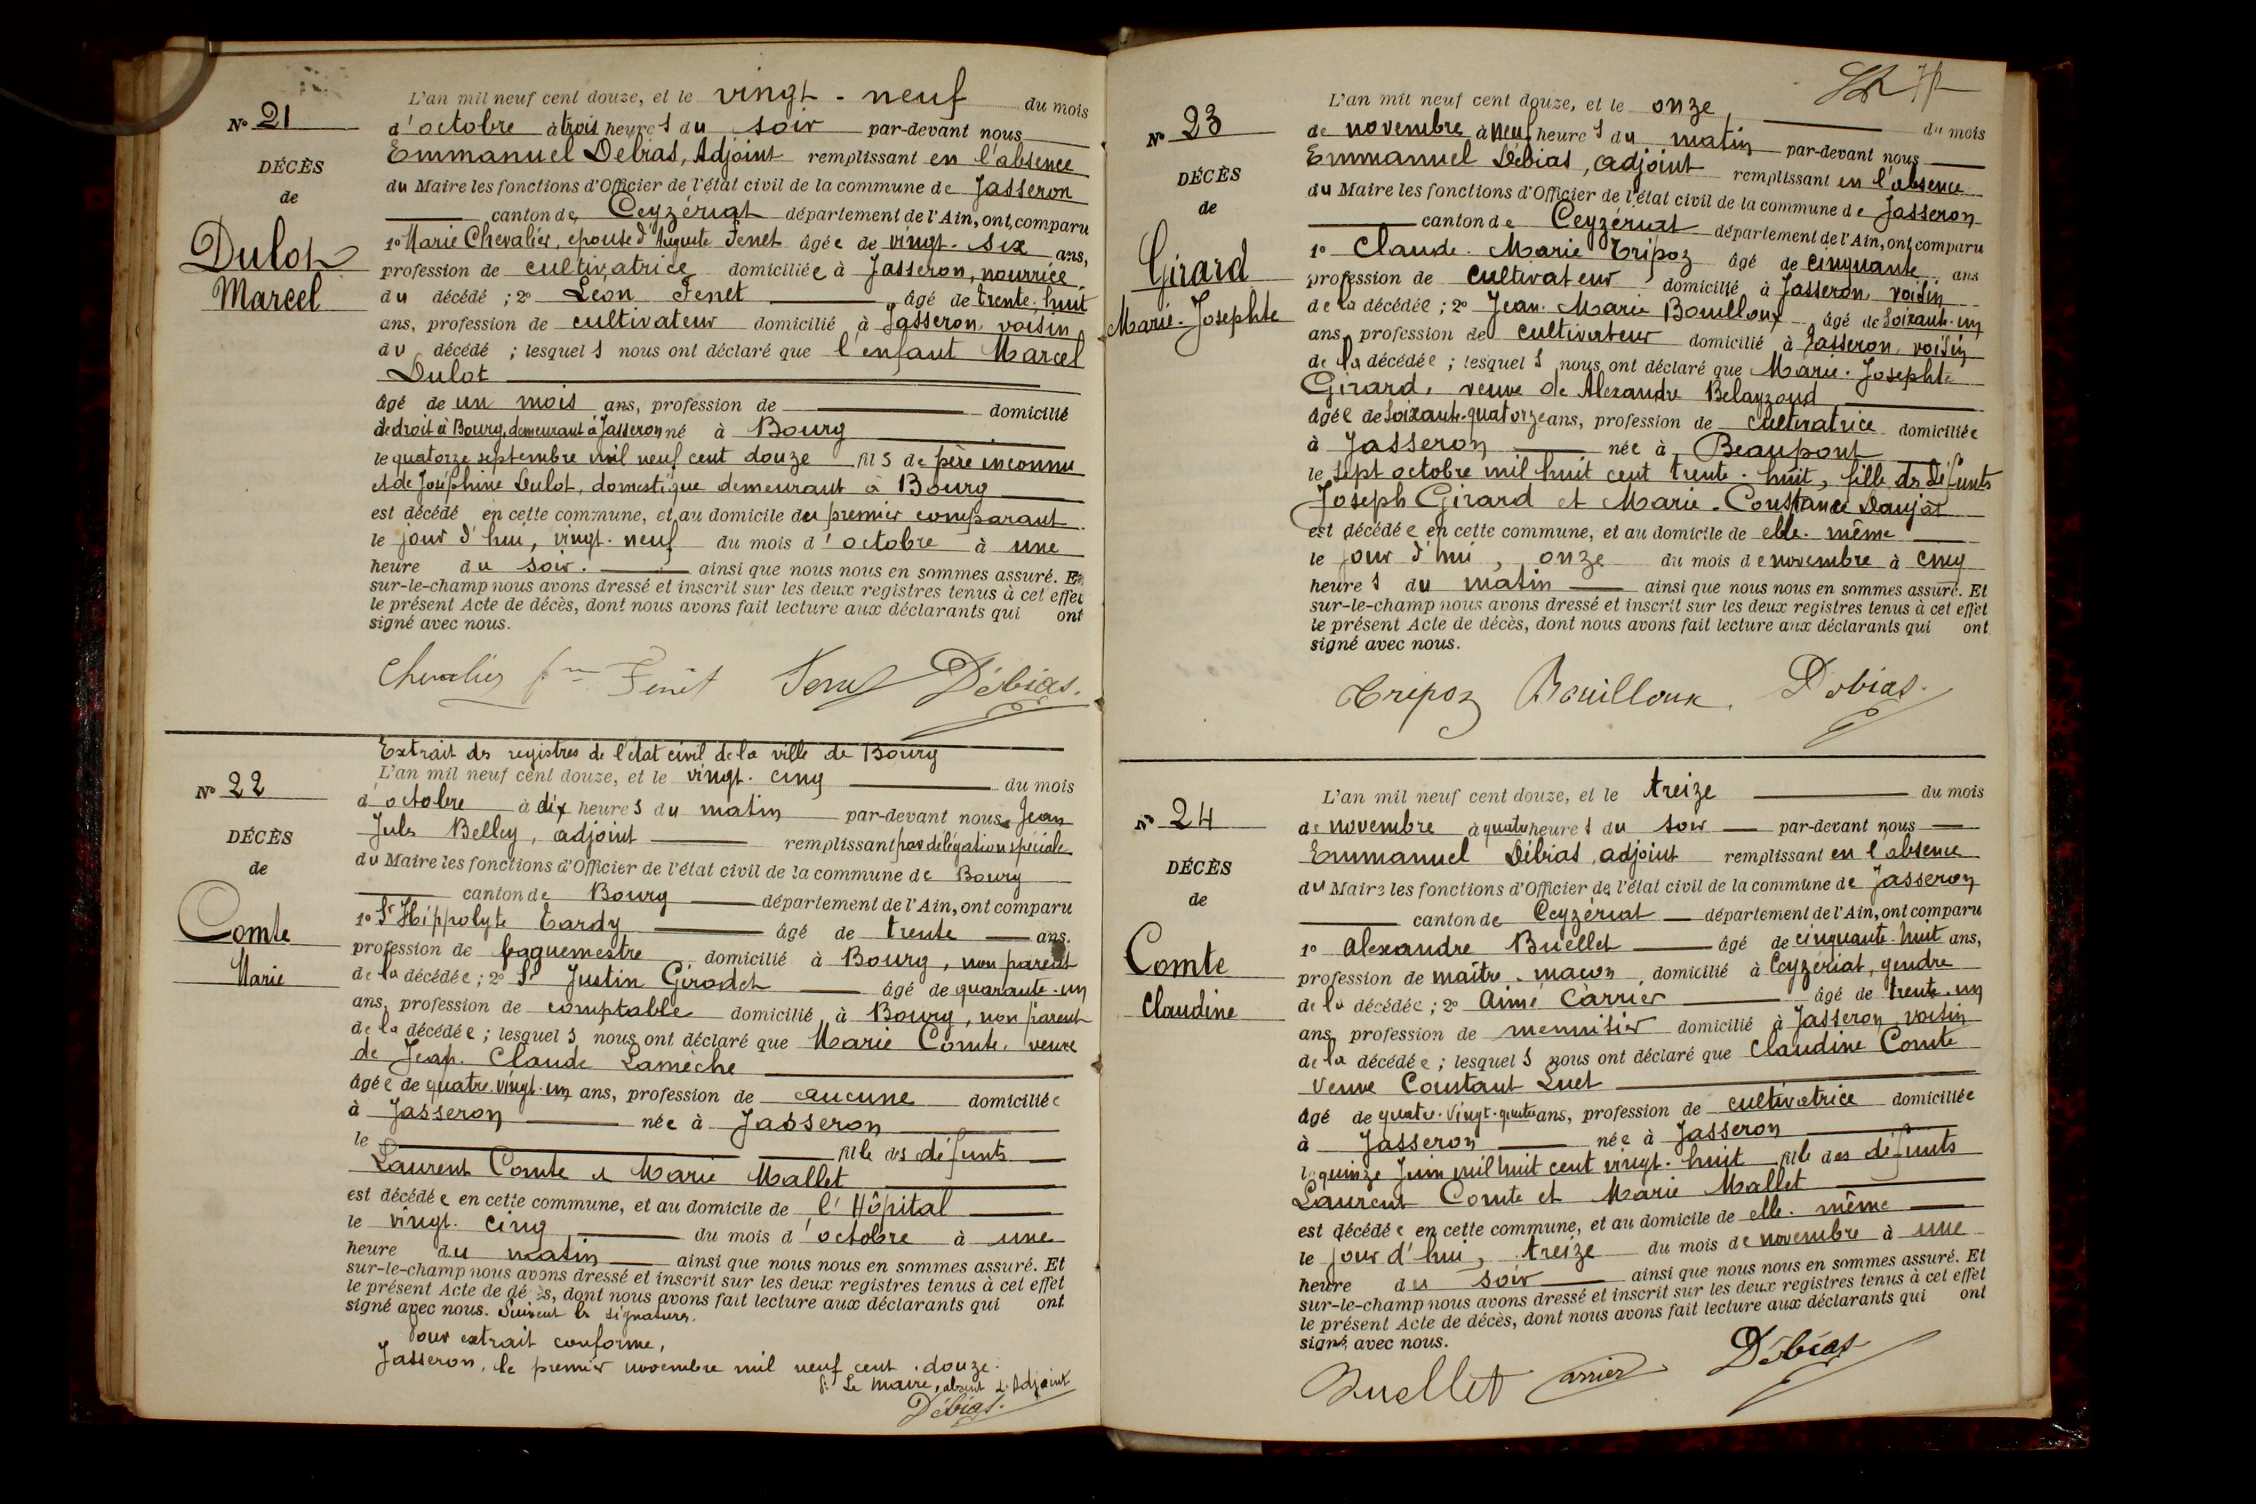 L'an mil neuf cent douze, et le vingt-neuf du mois
No 21
d'octobre à trois heures du soir par-devant nous
Emmanuel Débias, Adjoint remplissant en l'absence
DÉCÈS
du Maire les fonctions d'Officier de l'état civil de la commune de Jasseron
de
canton de Ceyzériat département de l'Ain, ont comparu
Dulot
1o Marie Chevalier, epouse d'Auguste Fenet âgée de vingt-six ans,
profession de cultivatrice domiciliée à Jasseron, nourrice
Marcel
du décédé ; 2o Léon Fenet âgé de trente-huit
ans, profession de cultivateur domicilié à Jasseron, voisin
du décédé ; lesquels nous ont déclaré que l'enfant Marcel
Dulot
âgé de un mois ans, profession de domicilié
de droit à Bourg, demeurant à Jasseron né à Bourg
le quatorze septembre mil neuf cent douze fils de père inconnu
et de Joséphine Dulot, domestique demeurant à Bourg
est décédé en cette commune, et au domicile du premier comparant
le jour d'hui, vingt-neuf du mois d'octobre à une
heure du soir. ainsi que nous nous en sommes assuré. Et
sur-le-champ nous avons dressé et inscrit sur les deux registres tenus à cet effet
le présent Acte de décès, dont nous avons fait lecture aux déclarants qui ont
signé avec nous.
Chevalier fme Fenet Fenet Débias.
Extrait des registres de l'état civil de la ville de Bourg
L'an mil neuf cent douze, et le vingt-cinq du mois
No 22
d'octobre à dix heures du matin par-devant nous Jean
Jules Belley, adjoint remplissant par délégation spéciale
DÉCÈS
du Maire les fonctions d'Officier de l'état civil de la commune de Bourg
de
canton de Bourg département de l'Ain, ont comparu
Comte
1o Sr Hippolyte Tardy âgé de trente ans.
profession de baguemestre domicilié à Bourg, non parent
Marie
de la décédée ; 2o Sr Justin Girodet âgé de quarante-un
ans, profession de comptable domicilié à Bourg, non parent
de la décédée ; lesquels nous ont déclaré que Marie Comte, veuve
de Jean-Claude Lamèche
âgée de quatre-vingt-un ans, profession de aucune domiciliée
à Jasseron née à Jasseron
le fille des défunts
Laurent Comte et Marie Mallet
est décédée en cette commune, et au domicile de l'Hôpital
le vingt-cinq du mois d'octobre à une
heure du matin ainsi que nous nous en sommes assuré. Et
sur-le-champ nous avons dressé et inscrit sur les deux registres tenus à cet effet
le présent Acte de décès, dont nous avons fait lecture aux déclarants qui ont
signé avec nous. Suivent les signatures.
Pour extrait conforme,
Jasseron, le premier novembre mil neuf cent douze.
Pr Le Maire, absent L'Adjoint
Débias.
L'an mil neuf cent douze, et le onze du mois
No 23
de novembre à neuf heures du matin par-devant nous
Emmanuel Débias, adjoint remplissant en l'absence
DÉCÈS
du Maire les fonctions d'Officier de l'état civil de la commune de Jasseron
de
canton de Ceyzériat département de l'Ain, ont comparu
Girard
1o Claude-Marie Tripoz âgé de cinquante ans
profession de cultivateur domicilié à Jasseron, voisin
Marie-Josephte
de la décédée ; 2o Jean-Marie Bouilloux âgé de soixante-un
ans, profession de cultivateur domicilié à Jasseron, voisin
de la décédée ; lesquels nous ont déclaré que Marie-Josephte
Girard, veuve de Alexandre Belayzoud
âgée de soixante-quatorze ans, profession de cultivatrice domiciliée
à Jasseron née à Beaupont
le sept octobre mil huit cent trente-huit, fille des défunts
Joseph Girard et Marie-Constance Daujat
est décédée en cette commune, et au domicile de elle-même
le jour d'hui, onze du mois de novembre à cinq
heures du matin ainsi que nous nous en sommes assuré. Et
sur-le-champ nous avons dressé et inscrit sur les deux registres tenus à cet effet
le présent Acte de décès, dont nous avons fait lecture aux déclarants qui ont
signé avec nous.
Tripoz Bouilloux. Débias.
L'an mil neuf cent douze, et le treize du mois
No 24
de novembre à quatre heures du soir par-devant nous
Emmanuel Débias, adjoint remplissant en l'absence
DÉCÈS
du Maire les fonctions d'Officier de l'état civil de la commune de Jasseron
de
canton de Ceyzériat département de l'Ain, ont comparu
Comte
1o Alexandre Buellet âgé de cinquante-huit ans,
profession de maître-maçon domicilié à Ceyzériat, gendre
Claudine
de la décédée ; 2o Aimé Carrier âgé de trente-un
ans, profession de menuisier domicilié à Jasseron, voisin
de la décédée ; lesquels nous ont déclaré que Claudine Comte
veuve Constant Luet
âgé de quatre-vingt-quatre ans, profession de cultivatrice domiciliée
à Jasseron née à Jasseron
le quinze Juin mil huit cent vingt-huit fille des défunts
Laurent Comte et Marie Mallet
est décédée en cette commune, et au domicile de elle-même
le jour d'hui, treize du mois de novembre à une
heure du soir ainsi que nous nous en sommes assuré. Et
sur-le-champ nous avons dressé et inscrit sur les deux registres tenus à cet effet
le présent Acte de décès, dont nous avons fait lecture aux déclarants qui ont
signé avec nous.
Buellet Carrier Débias